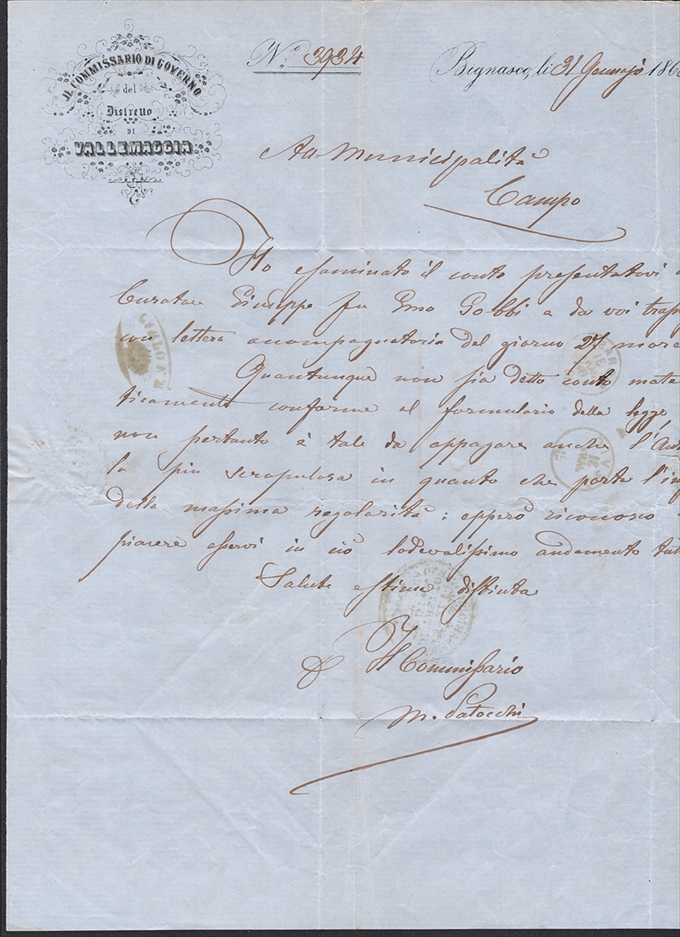 IL COMMISSARIO DI GOVERNO
del
Distretto
DI
VALLEMAGGIA
N.º 3934
Bignasco, li 31 Gennajo 186
Municipalità
Campo
Ho esaminato il conto presentatovi
Curatore Giuseppe fu Gobbi a da voi
con lettera accompagnatoria del giorno 27
Quantunque non sia detto conto mate
ticamente conforme al formulario della legge
non pertanto è tale da appagare anche
la più scrupolosa in quanto che porta
della massima regolarità; epperò riconosco
piacere esservi in ciò lodevolissimo andamento
Salute e stima distinta
Il Commissario
M. Patocchi